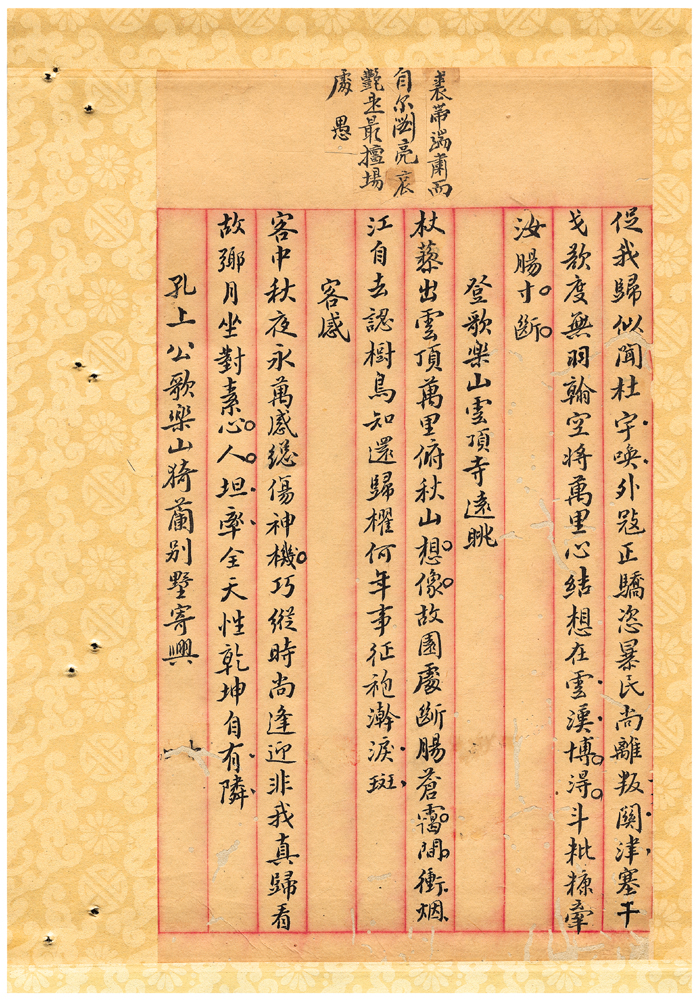 裘帶端肅而
自尔瀏亮哀
艷是最擅場
處 愚
促我歸似聞杜宇喚外寇正驕恣暴民尚離叛關津塞干
戈歘度無羽翰空將萬里心結想在雲漢博得斗粃糠牽
汝腸寸斷
登歌樂山雲頂寺遠眺
杖藜出雲頂萬里俯秋山想像故園處斷腸蒼靄間衝烟
江自去認樹鳥知還歸櫂何年事征袍澣淚斑
客感
客中秋夜永萬感總傷神機巧從時尚逢迎非我真歸看
故鄉月坐對素心人坦率全天性乾坤自有隣
孔上公歌樂山猗蘭別墅寄興